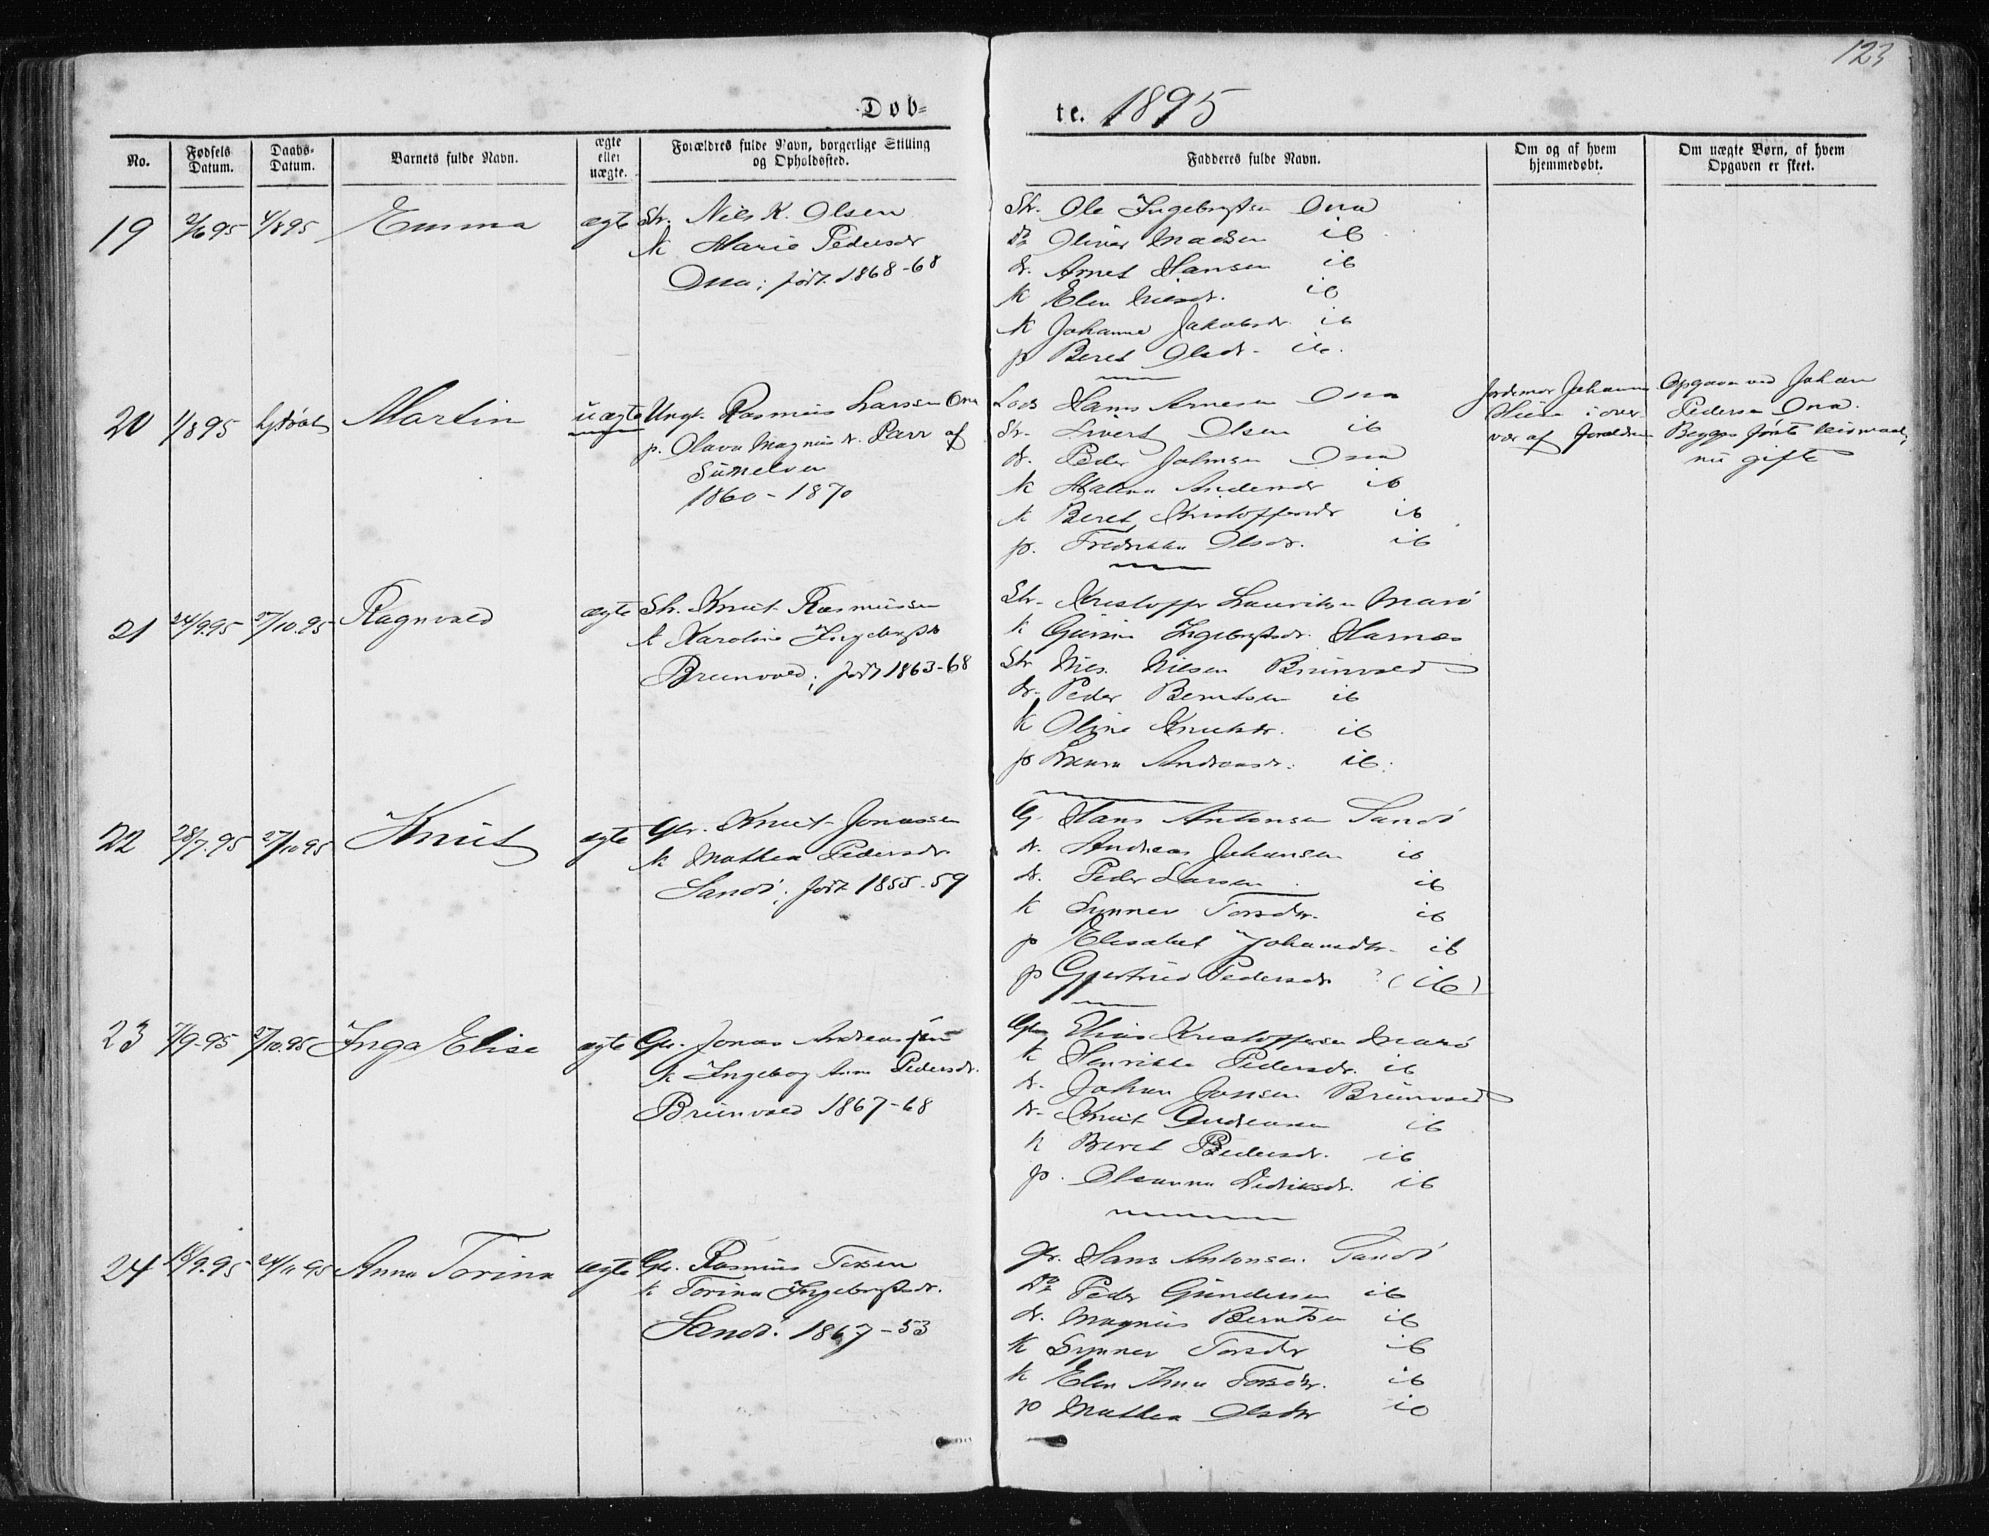 123
Døb=
te. 1895
No.
Fødsels Datum.
Daabs-Datum.
Barnets fulde Navn.
ægte eller uægte.
Forældres fulde Navn, borgerlige Stilling og Opholdssted.
Fadderes fulde Navn.
Om og af hvem hjemmedøbt.
Om uægte Børn, af hvem Opgaven er skeet.
19 2/6 95 4/8 95 Emma ægte Str. Nils K. Olsen
k Marie Pedersdr
Ona; født 1868-68
Str. Ole Ingebrgtsen Ona
Do Oliver Madsen ib
dr. Arnet Hansen ib
k Elen Nilsdr. ib
k Johanna Jakobsdr. ib
p Beret Olsdr. ib.
20 1/8 95 hjdøbt Martin uægte Ungk. Rasmus Larsen Ona
p. Olava Magnusdr. Parr af
Sunelven
1860-1870
Lods Hans Arnesen Ona
Str. Sivert Olsen ib
dr. Peder Johnsen Ona
k Malena Andersdr ib
k Beret Kristoffersdr ib
p. Fredrikka Olsdr. ib
Jordemor Johanna
i over-
vær af Forældrene
Opgave ved Johan
Pedersen Ona.
Begges første leiermaal,
nu gifte
21 24/9.95 27/10.95 Ragnvald ægte Str. Knut Rasmussen
k Karoline Ingebrgtsdr
Breinvald; født 1863-68
Str. Kristoffer Lauritsen Marø
k Ingebrgtsdr. Harnæs
Str Nils Nilsen Brunvald
dr. Peder Berntsen ib
k Oline Knutsdr. ib
p Andreasdr. ib.
22 28/7.95 27/10 95 Knut ægte Gbr. Knut Jonassen
k Mathea Pedersdr
Sandø; født 1855-59
G. Hans Antonsen Sandø
dr. Andreas Johansen ib
dr. Peder Larsen ib
k Synnev Torsdtr. ib
p Elisabet Johansdtr. ib
p Gjertrud Pedersdr ? (ib)
23 7/9.95 27/10.95 Inga Elise ægte Gbr. Jonas Andreassen
k Ingebog Anna Pedersdr.
Breinvald 1867-68
Elias Kristoffersen Marø
k Henrikka Pedersdr. ib
dr. Johan Jonsen Brunvald
dr. Knut Andreasen ib
k Beret Pedersdr. ib
p. Oleanna Didriksdr. ib
24 18/9.95 24/11 95 Anna Torina ægte Gbr. Rasmus Torsen
k Torina Ingebrgtsdr.
Sandø. 1867-53
Gbr. Hans Antonsen Sandø
Do Peder Gundersen ib
dr. Magnus Berntsen ib
k Synnev Torsdtr ib
k Elen Anna Torsdtr. ib
p Mathea Olsdtr ib